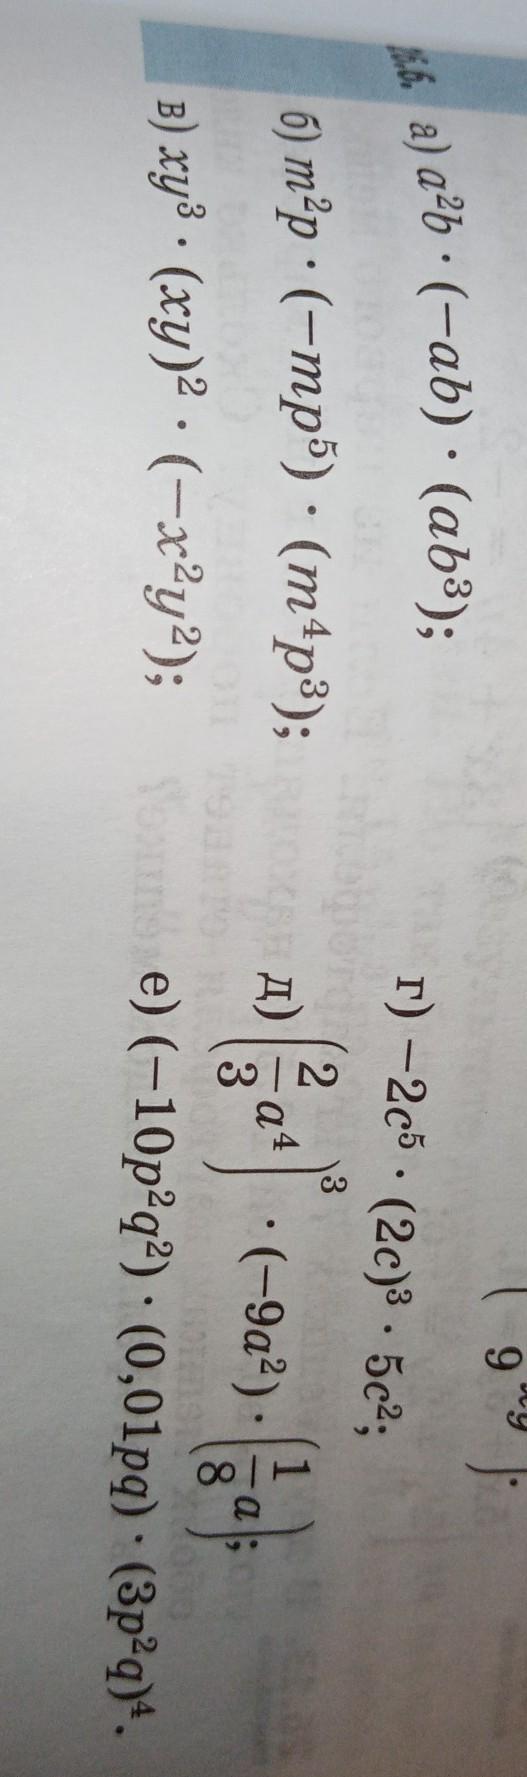 26.6. а) a²b · (−ab) · (ab³);
б) m²p · (−mp⁵) · (m⁴p³);
в) xy³ · (xy)² · (−x²y²);
г) −2c⁵ · (2c)³ · 5c²;
д) (2/3 a⁴)³ · (−9a²) · (1/8 a);
е) (−10p²q²) · (0,01pq) · (3p²q)⁴.